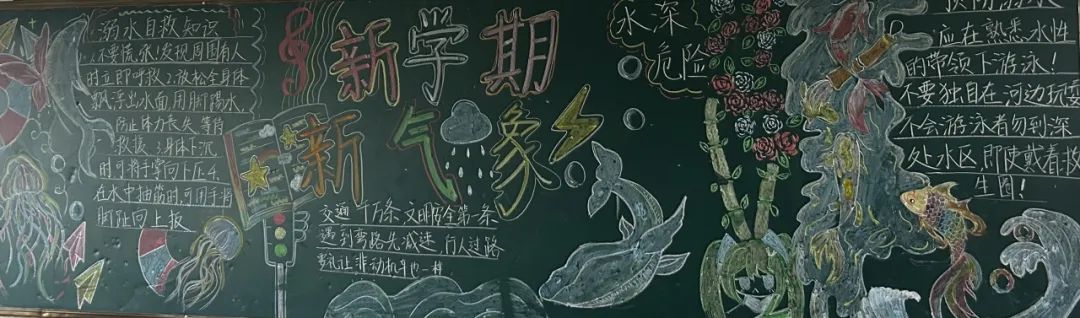 溺水自救知识
1.不要慌张!发现周围有人
时立即呼救;2.放松全身体
飘浮出水面,用脚踢水,
防止体力丧失,等待
救援;3.身体下沉
时可将手掌向下压;4.
在水中抽筋时,可用手指
脚趾向上扳
新学期
新气象
交通千万条 文明安全第一条
遇到弯路先减速 行人过路
要礼让 非动机车也一样
水深
危险
预防溺水
应在熟悉水性
的带领下游泳!
不要独自在河边玩耍
不会游泳者勿到深
处水区,即使戴着救
生圈!